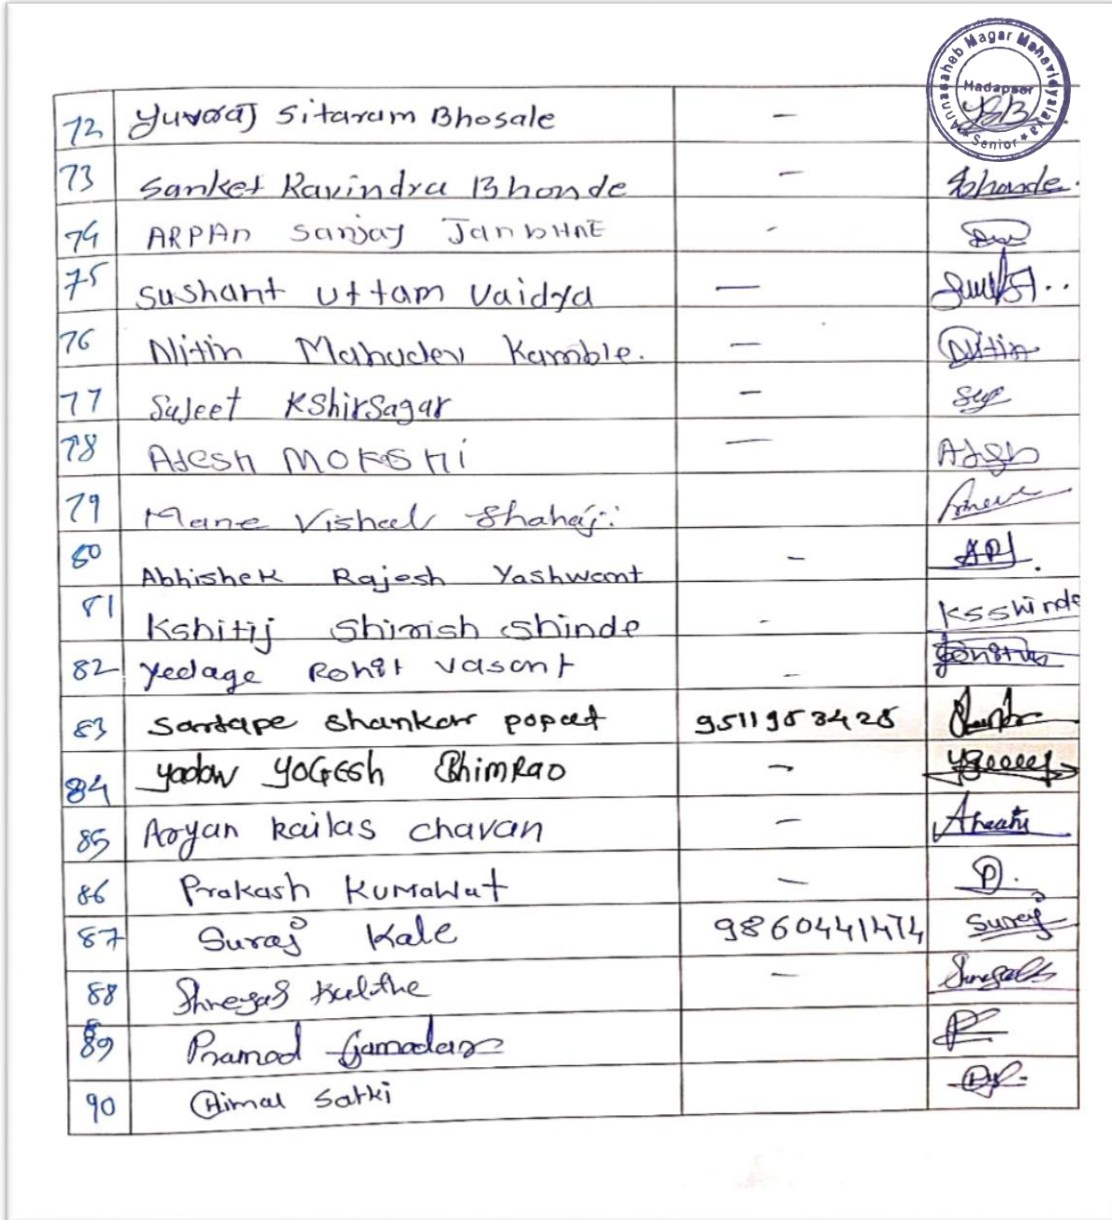 Annasaheb Magar Mahavidyalaya
Hadapser
* Senior *
72 Yuvraj Sitaram Bhosale -
73 Sanket Ravindra Bhonde - Bhonde.
74 ARPAn Sanjay JanbHnE -
75 Sushant Uttam Vaidya -
76 Nitin Mahadev Kamble. - Nitin
77 Sujeet Kshirsagar -
78 AJesh MOKSHi -
79 Mane Vishal Shahaji
80 Abhishek Rajesh Yashwant -
81 Kshitij Shirish Shinde - KSShinde
82 Yedage Rohit Vasant -
83 Sartape Shankar popat 9511953428
84 Yadav YOGESh BhimRao -
85 Aryan Kailas Chavan -
86 Prakash Kumawat - P.
87 Suraj Kale 9860441474 Suraj
88 Shreyas Kulthe -
89 Pramod
90 Bimal Sarki